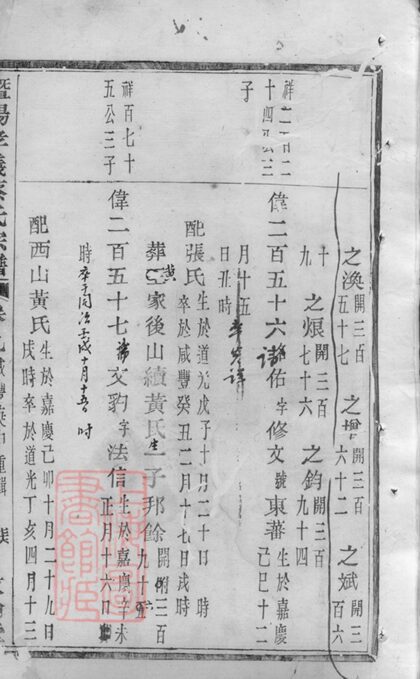 之渙開三百五十七 之增開三百六十二 之斌開三百六
十九 之烺開三百七十六 之鈞開三百九十四
祥二百二十四公三子
偉二百五十六諱佑字修文號東蕃生於嘉慶己巳十二
月十五日丑時 卒失詳
配張氏生於道光戊子十月二十日 時卒於咸豐癸丑二月十七日戌時
葬黃家後山續黃氏生一子邦餘開三百九十五
祥百七十五公三子
偉二百五十七諱文豹字法信生於嘉慶辛未正月十六日
時卒于同治壬戌十月 時
配西山黃氏生於嘉慶己卯十二月十九日戌時卒於道光丁亥四月十三
暨陽孝義 氏宗譜